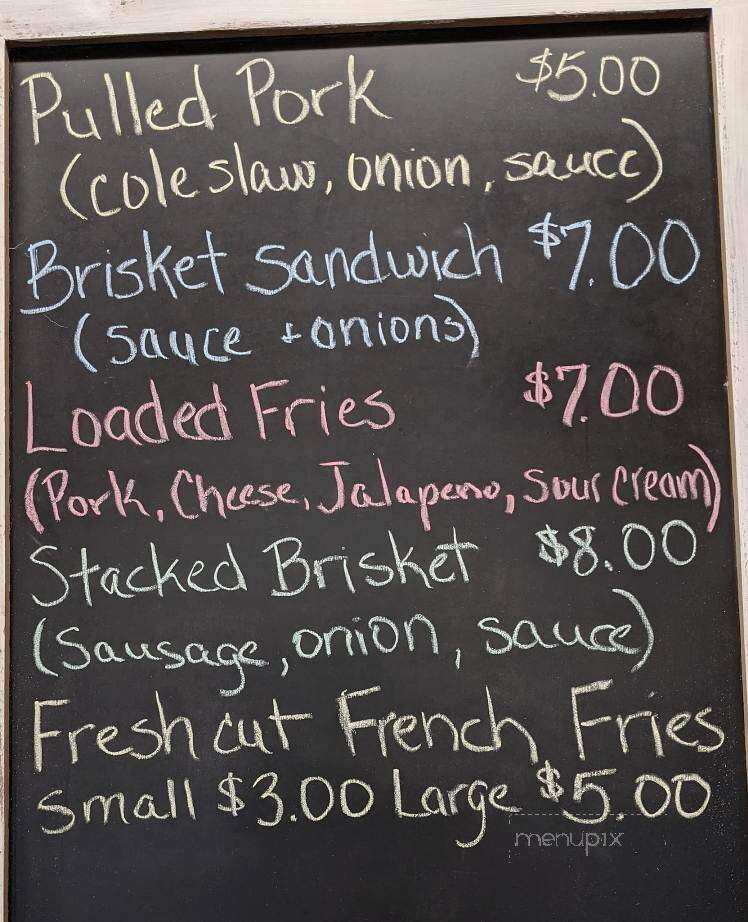 Pulled Pork $5.00
(coleslaw, onion, sauce)
Brisket Sandwich $7.00
(sauce + onions)
Loaded Fries $7.00
(Pork, Cheese, Jalapeno, Sour Cream)
Stacked Brisket $8.00
(Sausage, onion, sauce)
Fresh cut French Fries
Small $3.00 Large $5.00
menupix